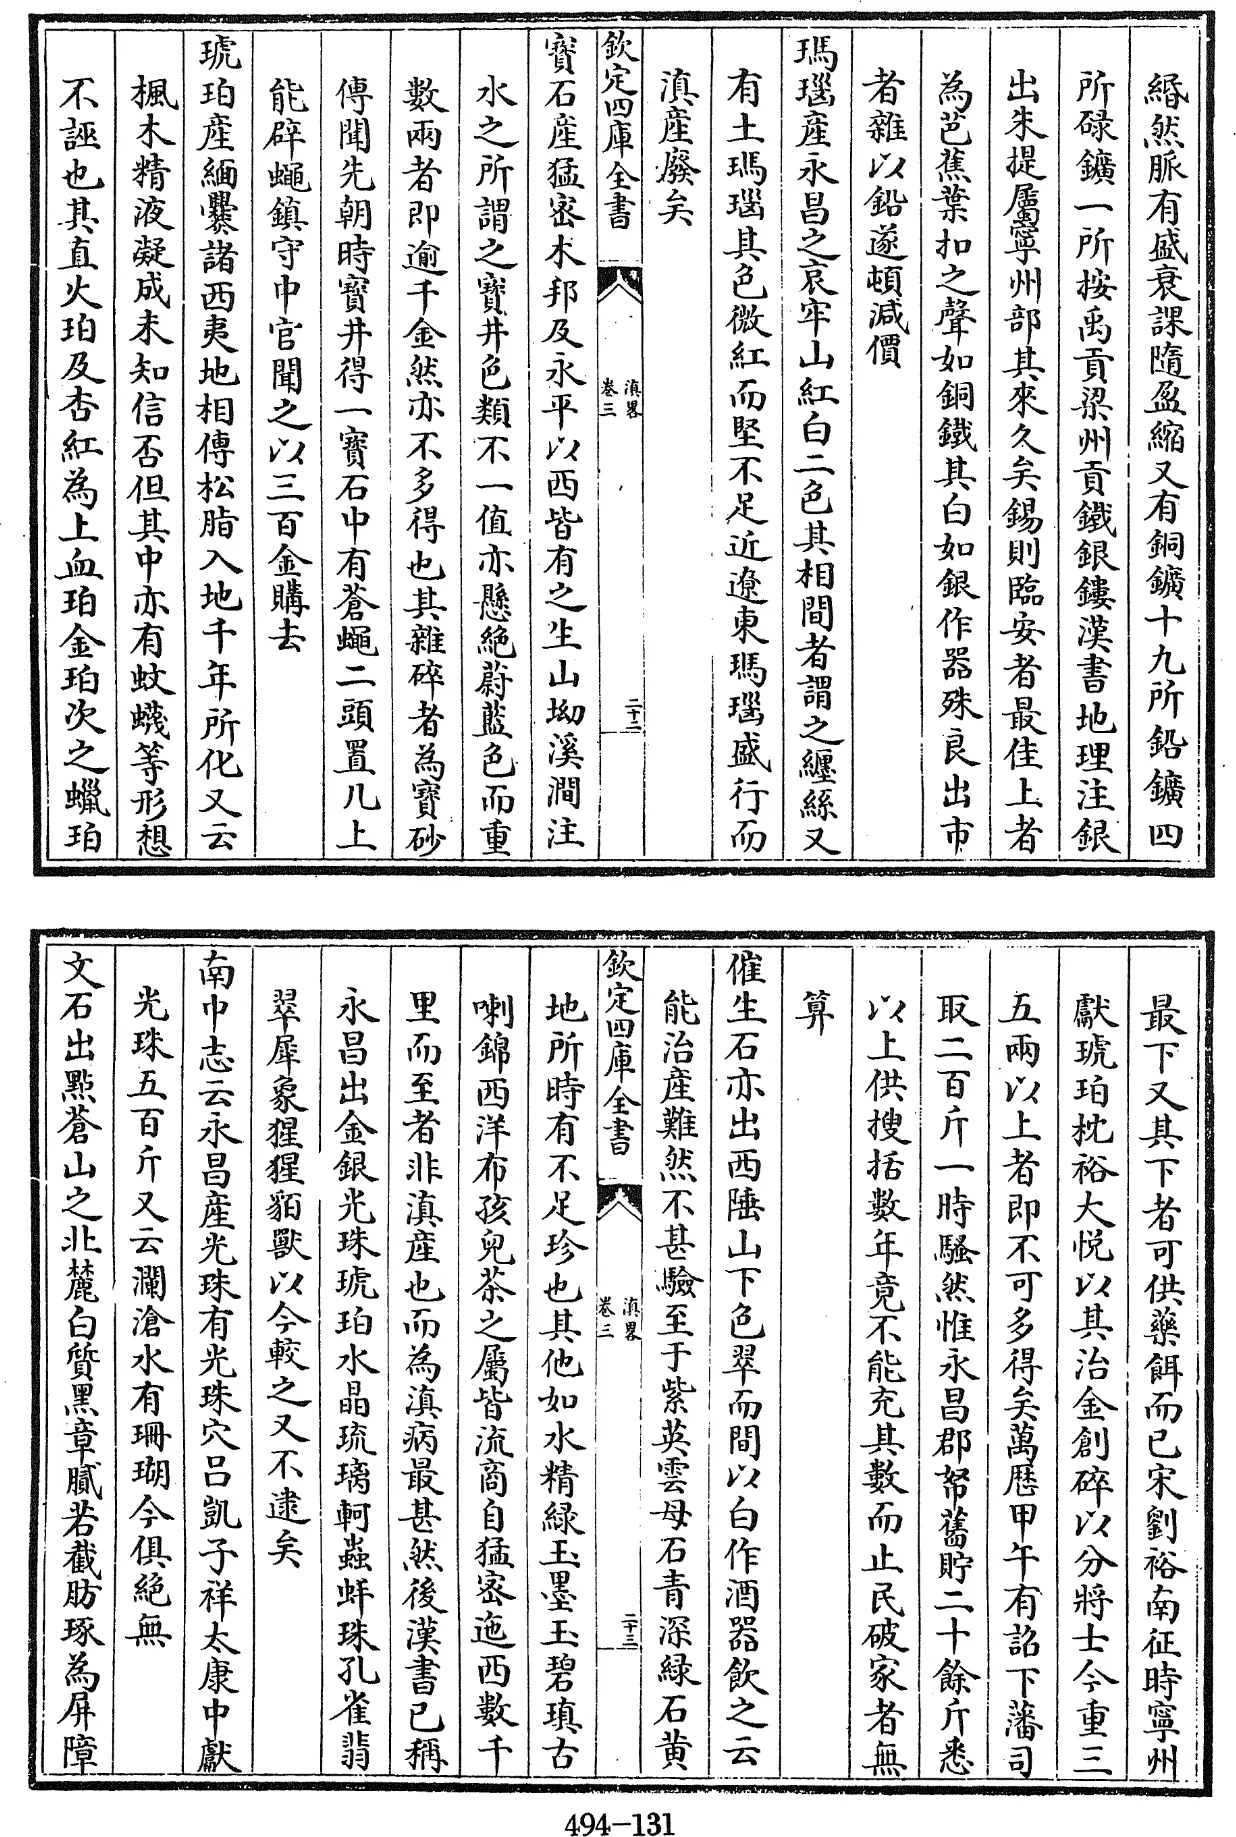 緡然脈有盛衰課隨盈縮又有銅鑛十九所鉛鑛四
所碌鑛一所按禹貢梁州貢鐵銀鏤漢書地理注銀
出朱提屬寧州部其來久矣錫則臨安者最佳上者
為芭蕉葉扣之聲如銅鐵其白如銀作器殊良出市
者雜以鉛遂頓減價
瑪瑙產永昌之哀牢山紅白二色其相間者謂之纏絲又
有土瑪瑙其色微紅而堅不足近遼東瑪瑙盛行而
滇產廢矣
欽定四庫全書 滇畧卷三 二十二
寶石產猛密木邦及永平以西皆有之生山坳溪澗注
水之所謂之寶井色類不一值亦懸絕蔚藍色而重
數兩者即逾千金然亦不多得也其雜碎者為寶砂
傳聞先朝時寶井得一寶石中有蒼蠅二頭置几上
能辟蠅鎮守中官聞之以三百金購去
琥珀產緬爨諸西夷地相傳松脂入地千年所化又云
楓木精液凝成未知信否但其中亦有蚊蟻等形想
不誣也其直火珀及杏紅為上血珀金珀次之蠟珀
最下又其下者可供藥餌而已宋劉裕南征時寧州
獻琥珀枕裕大悅以其治金創碎以分將士今重三
五兩以上者即不可多得矣萬歷甲午有詔下藩司
取二百斤一時騷然惟永昌郡帑舊貯二十餘斤悉
以上供搜括數年竟不能充其數而止民破家者無
算
催生石亦出西陲山下色翠而間以白作酒器飲之云
能治產難然不甚驗至于紫英雲母石青深綠石黃
欽定四庫全書 滇畧卷三 二十三
地所時有不足珍也其他如水精綠玉墨玉碧瑱古
喇錦西洋布孩兒茶之屬皆流商自猛密迤西數千
里而至者非滇產也而為滇病最甚然後漢書已稱
永昌出金銀光珠琥珀水晶琉璃軻蟲蚌珠孔雀翡
翠犀象猩猩貊獸以今較之又不逮矣
南中志云永昌產光珠有光珠穴呂凱子祥太康中獻
光珠五百斤又云瀾滄水有珊瑚今俱絕無
文石出點蒼山之北麓白質黑章膩若截肪琢為屏障
494-131